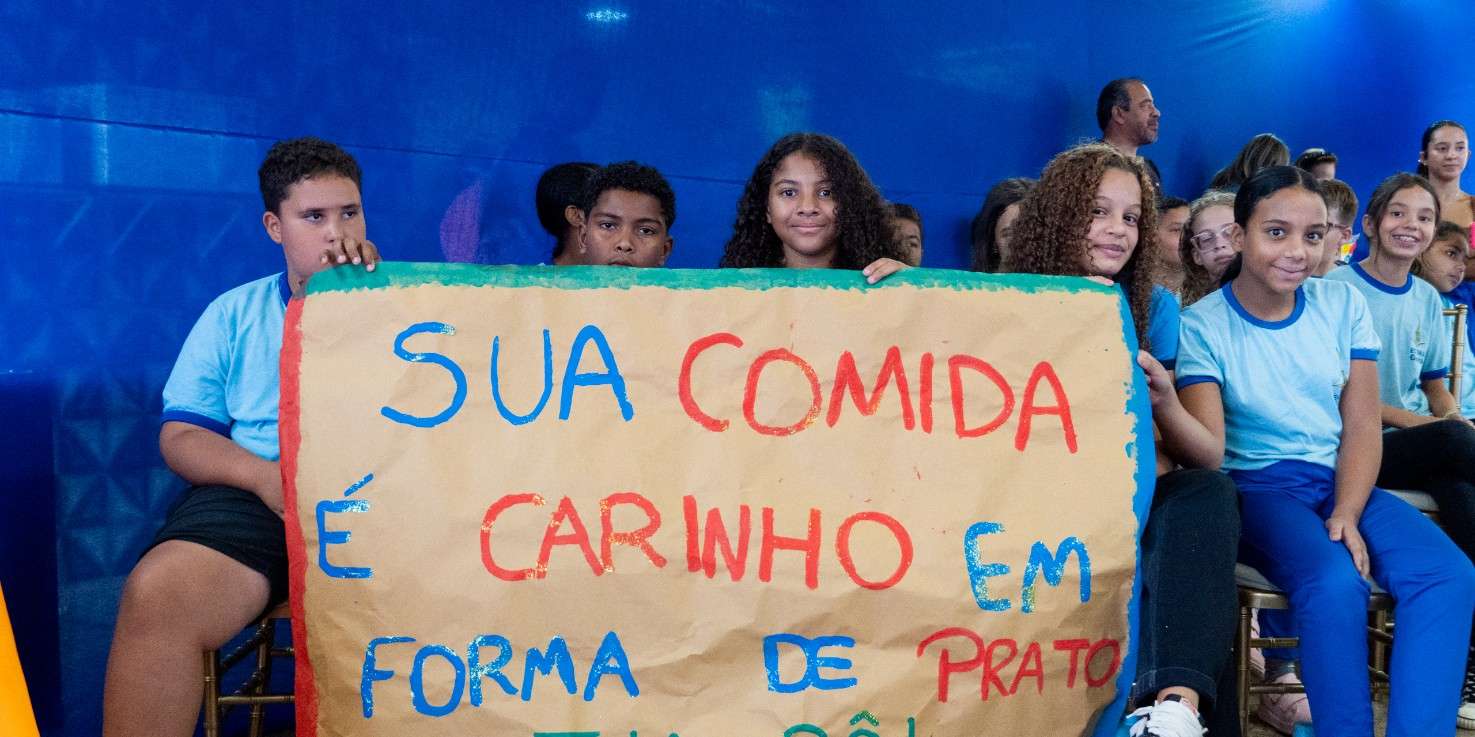 SUA COMIDA
É CARINHO EM
FORMA DE PRATO